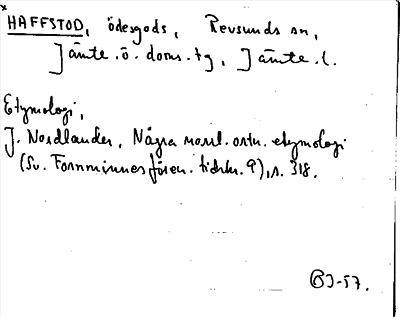 HAFFSTOD, ödesgods, Revsunds sn,
Jämte. ö. doms. tg, Jämte. l.
Etymologi,
J. Nordlander, Några norrl. ortn. etymologi
(Sv. Fornminnesfören. tidskr. 9), s. 318.
BJ-57.